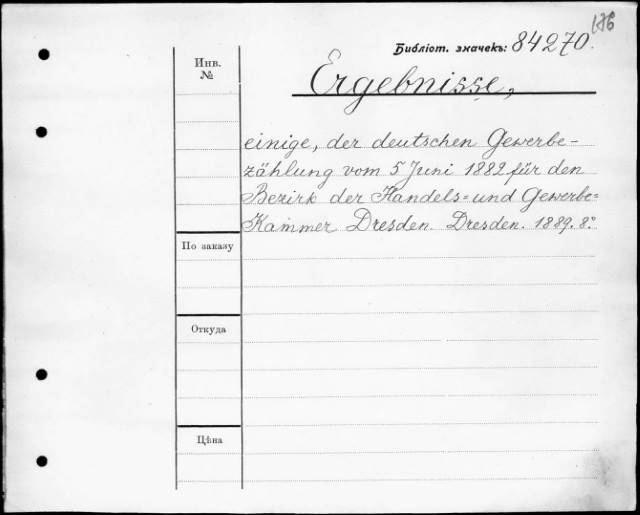 176
Библіот. значекъ: 84270.
Инв.
№
Ergebnisse,
einige, der deutschen Gewerbe-
zählung vom 5 Juni 1882 für den
Bezirk der Handels= und Gewerbe=
Kammer Dresden. Dresden. 1889. 8.°
По заказу
Откуда
Цѣна